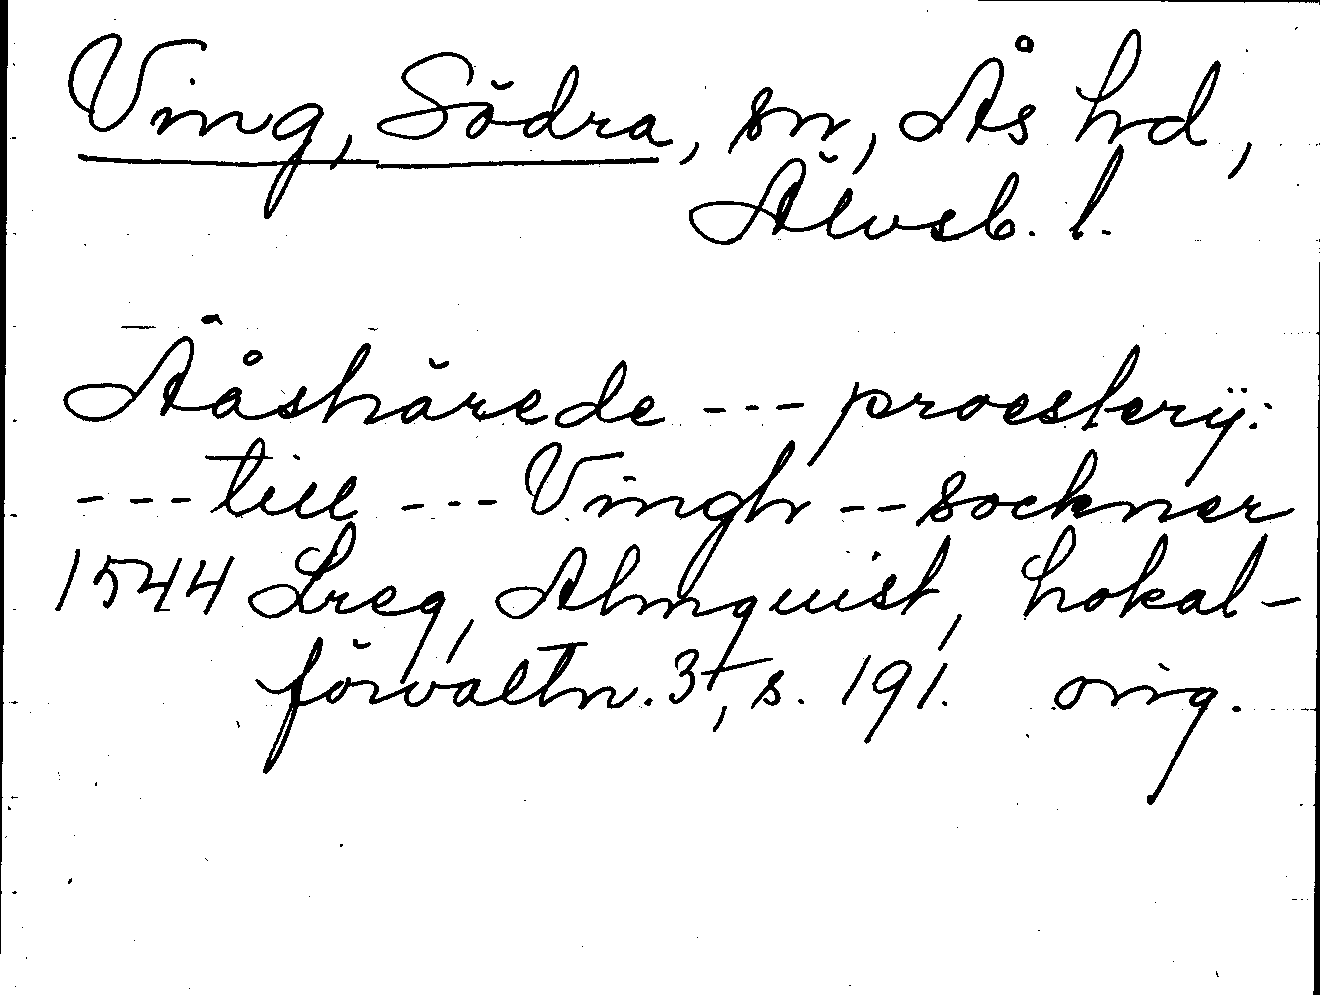 Ving, Södra, sn, Ås hd,
Älvsb. l.
Äåshärede --- proesterij:
--- till --- Vingh -- sockner
1544 Lreg, Almquist, Lokal-
förvaltn. 3, s. 191. orig.